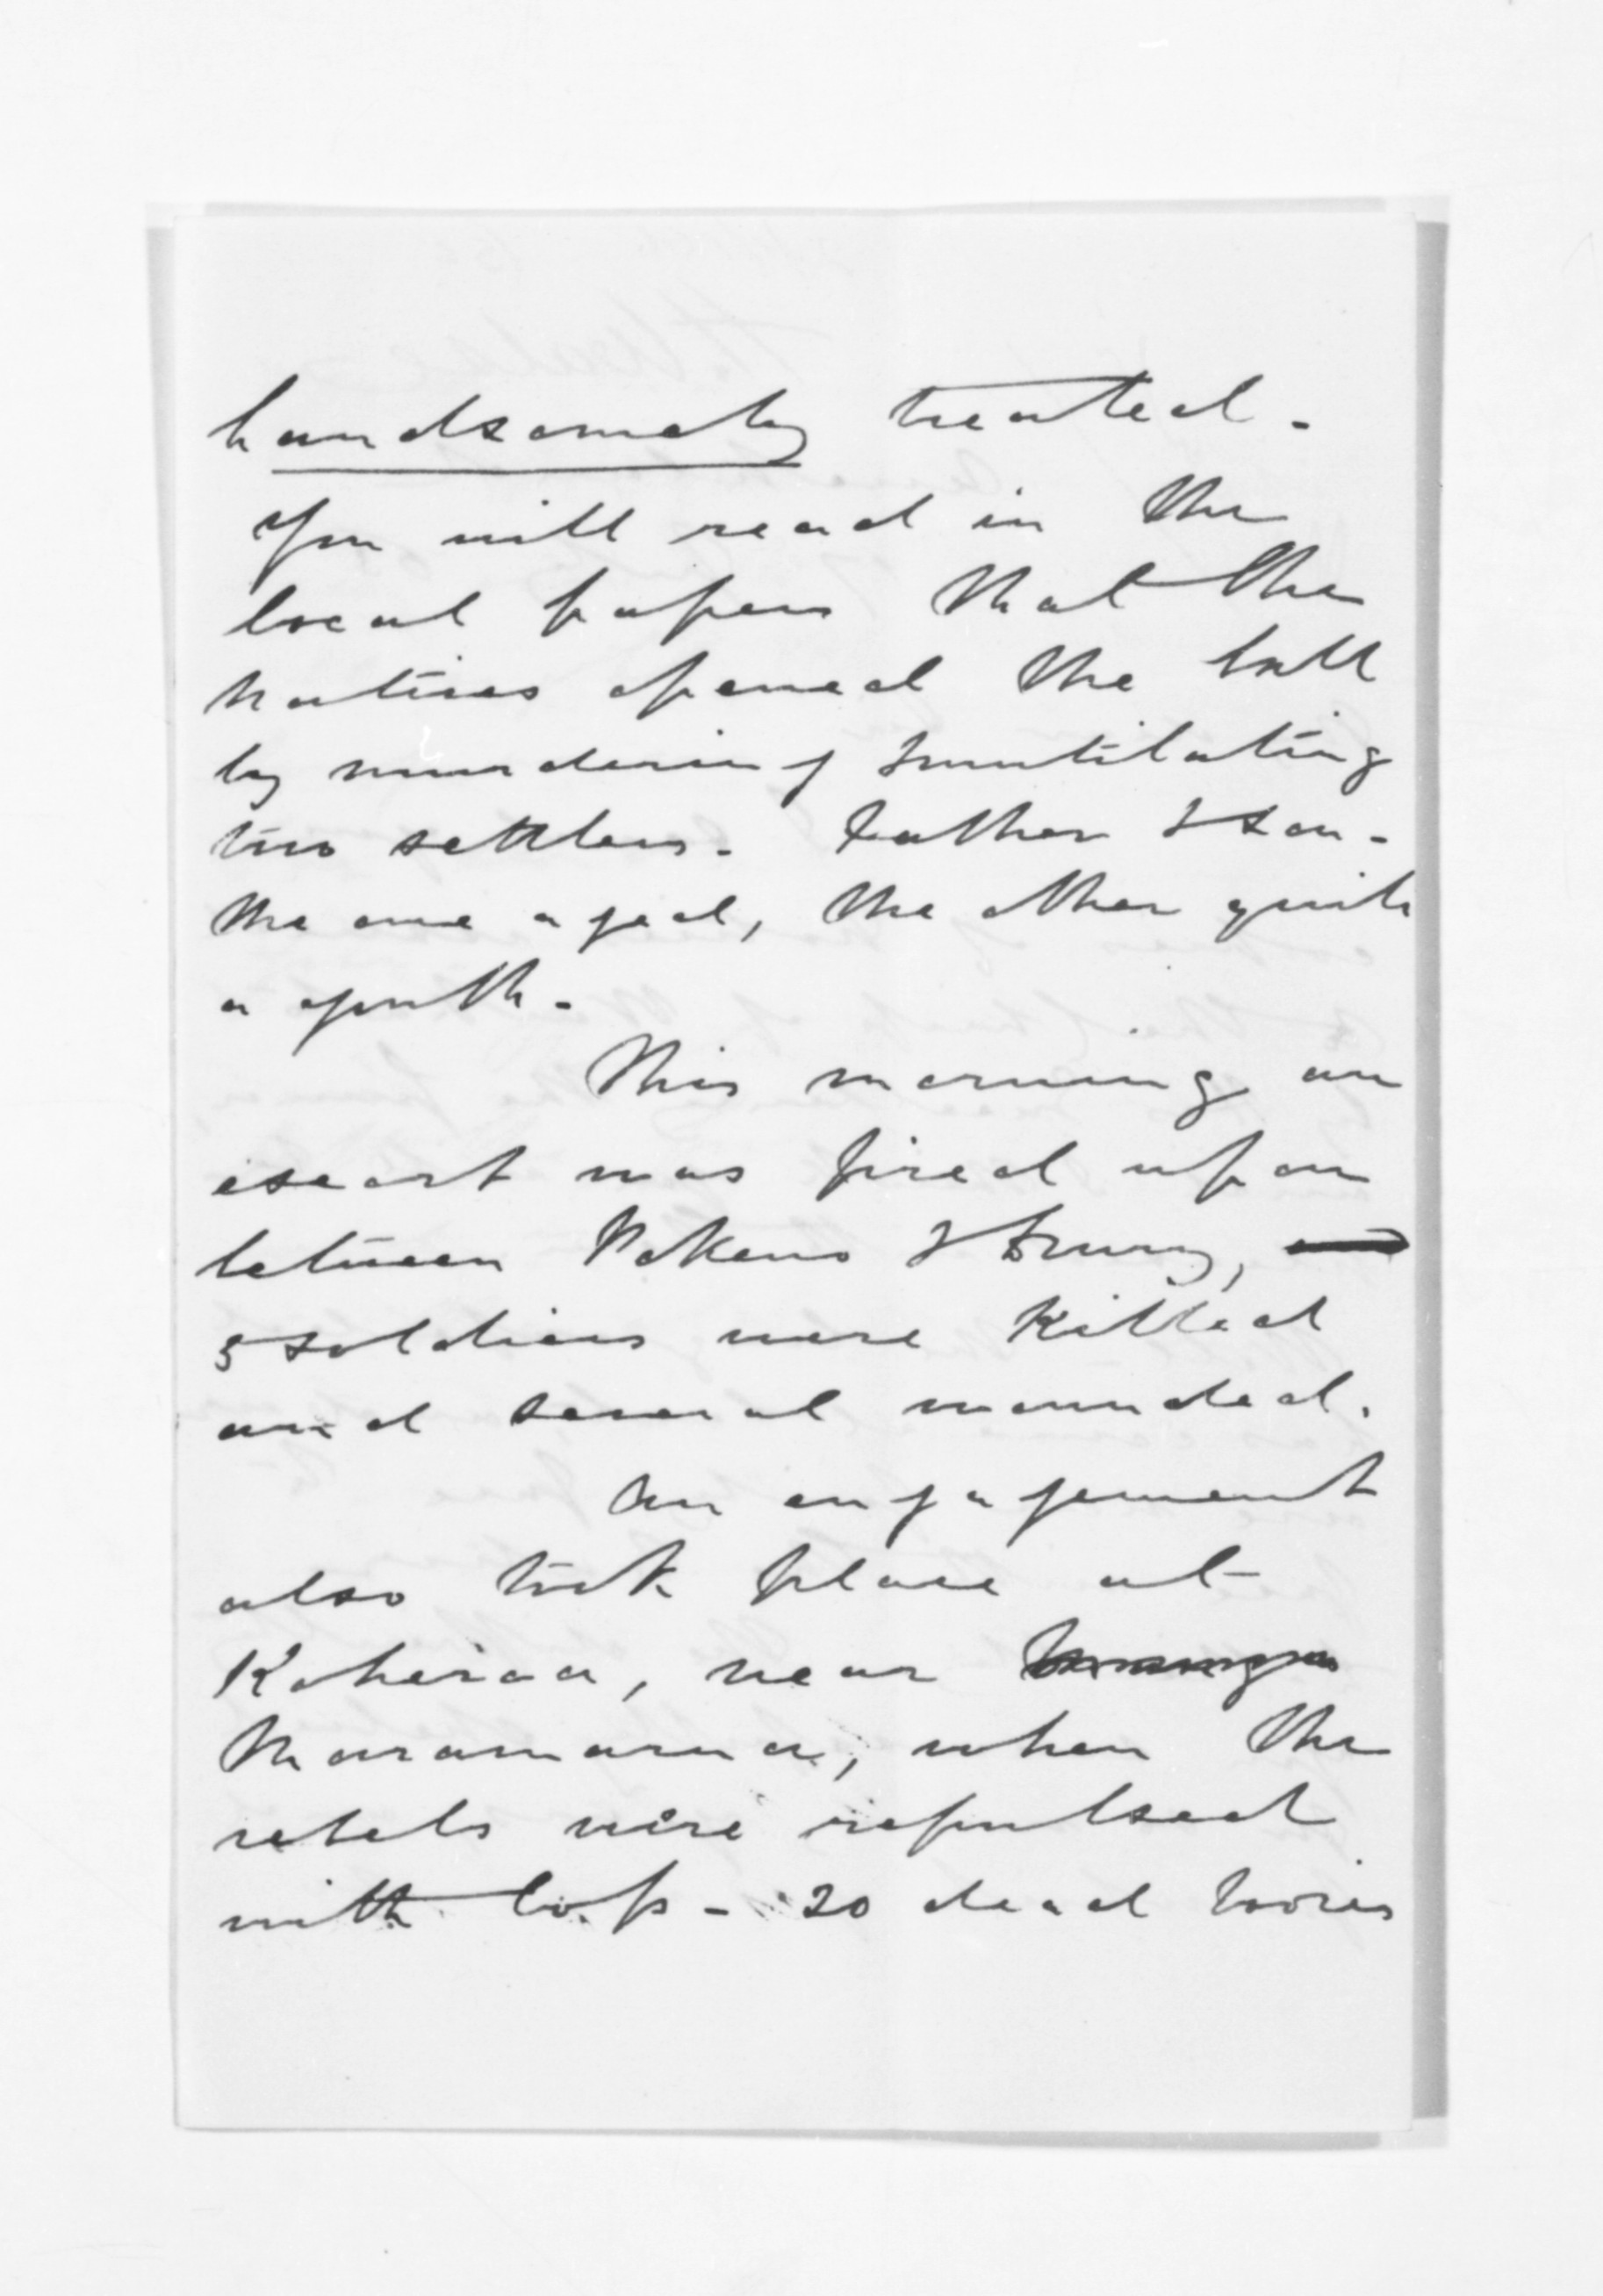 handsomely treated.
You will read in the
local papers that the
natives opened the ball
by murdering & mutilating
two settlers. Father & son.
the one aged, the other quite
a youth.
This morning an
escort was fired upon
between Pokeno & Drury,
5 soldiers were killed
and several wounded.
An engagement
also took place at
Koheroa, near
Maramarua, when the
rebels were repulsed
with loss - 30 dead bodies